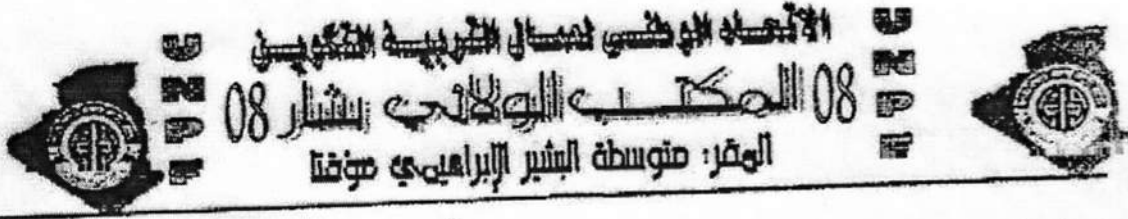 الاتحاد الوطني لعمال التربية التكوين
08 المكتب الولائي بشار 08
المقر: متوسطة البشير الإبراهيمي مؤقتا
UNPE
UNPE